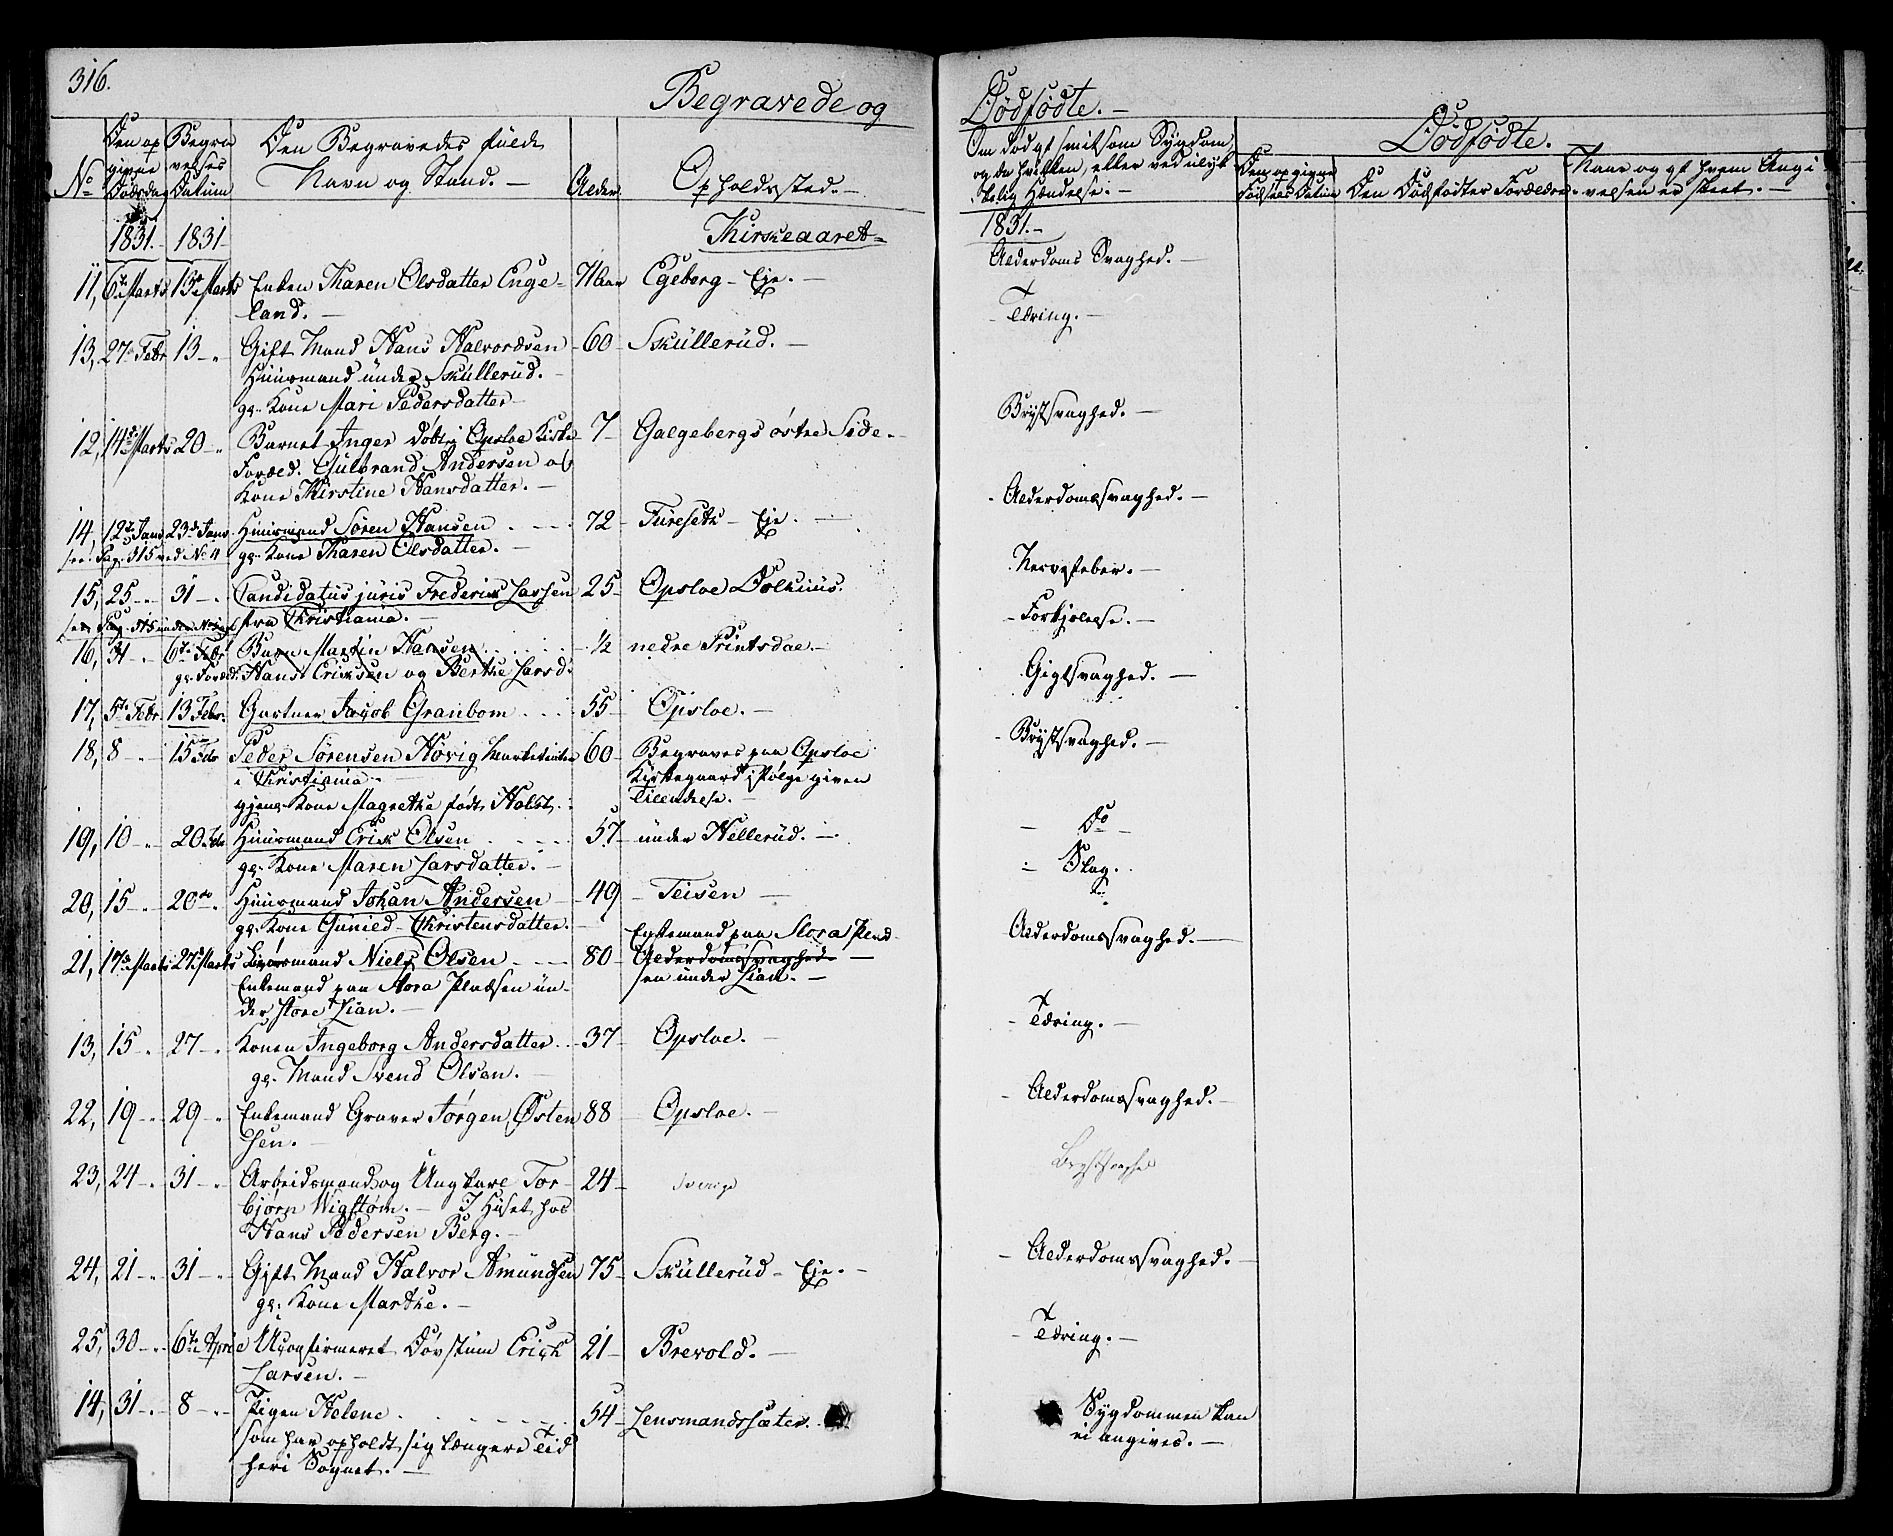 316.
Begravede og
Dødfødte.
No
Den op
givne
Dødsdag
Begra
velses
Datum
Den Begravedes fulde
Navn og Stand.
Alder
Opholdssted.
Om død af smitsom Sygdom,
og da hvilken, eller ved ulyk
kelig Hændelse.
Dødfødte.
Den opgivne
Fødsels Datum
Den Dødfødtes Forældre.
Naar og af hvem Angi
velsen er skeet.
1831. 1831
Kirkeaaret
1831.
11, 6te Marts 13de Marts Enken Karen Olsdatter Enge-
land.
71 Aar Egeberg - Eje.
Alderdoms Svaghed.
13, 27de Febr 13 - " Gift Mand Hans Halvordsen
Huusmand under Skullerud.
gs. Kone Mari Pedersdatter
60 Skullerud.
Tæring.
12, 14de Marts 20 - " Barnet Inger døbt i Opsloe Kirke
Foræld. Gulbrand Andersen og
Kone Kirstine Hansdatter.
7 Galgebergs østre Side.
Brystsvaghed.
14, 12te Janr 23de Janr. Huusmand Sören Hansen
see Pag. 315 ved No 4 gs. Kone Karen Olsdatter.
72 Fureseth - Eje.
Alderdomssvaghed.
15, 25 - " 31 - " Candidatus juris Frederik Lassen
fra Christiania.
25 Opsloe Dolhuus.
Nervefeber.
16, 31 - " 6te Febr Barn Martin Hansen
gs. Foræld: Hans Ericksen og Berthe Larsd.
1/2 nedre Printsdal
Forkjølelse.
17, 5te Febr. 13 Febr. Gartner Jacob Granbom
55 Opsloe.
Gigtsvaghed.
18, 8 " 15 Febr Peder Sørensen Høvig Marketenter
i Christiania
gjens. Kone Magrethe født Holst.
60 Begraves paa Opsloe
Kirkegaard ifølge given
Tilladelse.
Brystsvaghed.
19, 10 - " 20 Febr Huusmand Erick Olsen
gs. Kone Maren Larsdatter.
57 under Hellerud.
Do
20, 15 - " 20de " Huusmand Johan Andersen
gs. Kone Gunild Christensdatter.
49 Teisen
Slag.
21, 17de Marts 27de Marts Huusmand Niels Olsen
Enkemand paa Stora Pladsen un-
der store Lian.
80 Enkemand paa Stora Plad
Alderdomssvaghed
sen under Lian.
Alderdomssvaghed.
13, 15 - " 27 - " Konen Ingeborg Andersdatter
gs. Mand Svend Olsen.
37 Opsloe.
Tæring.
22, 19 - " 29 - " Enkemand Graver Jørgen Østen
sen.
88 Opsloe.
Alderdomssvaghed.
23, 24 - " 31 - " Arbeidsmand og Ungkarl Tor-
bjørn Wigstøm. I Huset hos
Hans Pedersen Berg.
24 Sverige
Brystsvaghed
24, 21 - " 31 - " Gift Mand Halvor Amundsen
gs. Kone Marthe.
75 Skullerud - Eje.
Alderdomssvaghed.
25, 30 - " 6te April Uconfirmeret Døvstum Erich
Larsen.
21 Brevold.
Tæring.
14, 31 - " 8 - " Pigen Helene
som har opholdt sig længere Tid
her i Sognet.
54 Lensmandssæter.
Sygdommen kan
ei angives.